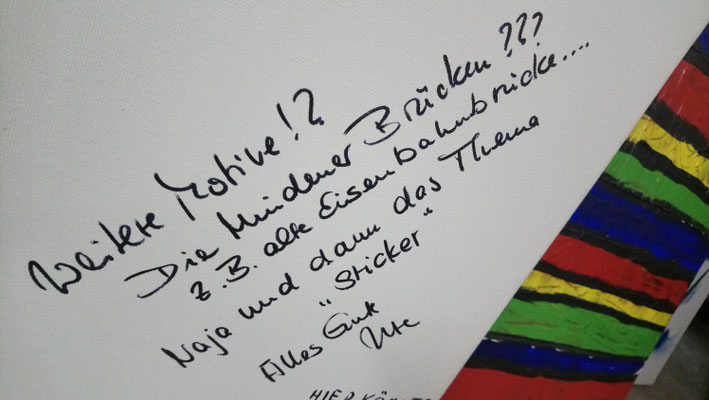 Weitere Motive!?
Die Mindener Brücken???
z.B. alte Eisenbahnbrücke....
Naja und dann das Thema
"Sticker"
Alles Gute
Ute
HIER